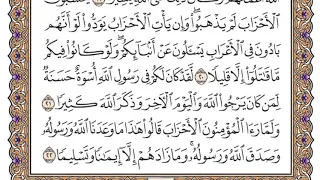 ٱلْأَحْزَابَ لَمْ يَذْهَبُوا۟ ۖ وَإِن يَأْتِ ٱلْأَحْزَابُ يَوَدُّوا۟ لَوْ أَنَّهُم
بَادُونَ فِى ٱلْأَعْرَابِ يَسْـَٔلُونَ عَنْ أَنۢبَآئِكُمْ ۖ وَلَوْ كَانُوا۟ فِيكُم
مَّا قَـٰتَلُوٓا۟ إِلَّا قَلِيلًا ٢٠ لَّقَدْ كَانَ لَكُمْ فِى رَسُولِ ٱللَّهِ أُسْوَةٌ حَسَنَةٌ
لِّمَن كَانَ يَرْجُوا۟ ٱللَّهَ وَٱلْيَوْمَ ٱلْـَٔاخِرَ وَذَكَرَ ٱللَّهَ كَثِيرًا ٢١
وَلَمَّا رَءَا ٱلْمُؤْمِنُونَ ٱلْأَحْزَابَ قَالُوا۟ هَـٰذَا مَا وَعَدَنَا ٱللَّهُ وَرَسُولُهُۥ
وَصَدَقَ ٱللَّهُ وَرَسُولُهُۥ ۚ وَمَا زَادَهُمْ إِلَّآ إِيمَـٰنًا وَتَسْلِيمًا ٢٢